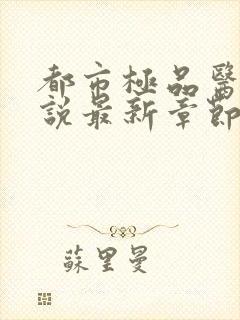 都市極品醫
說最新章節
蘇里曼